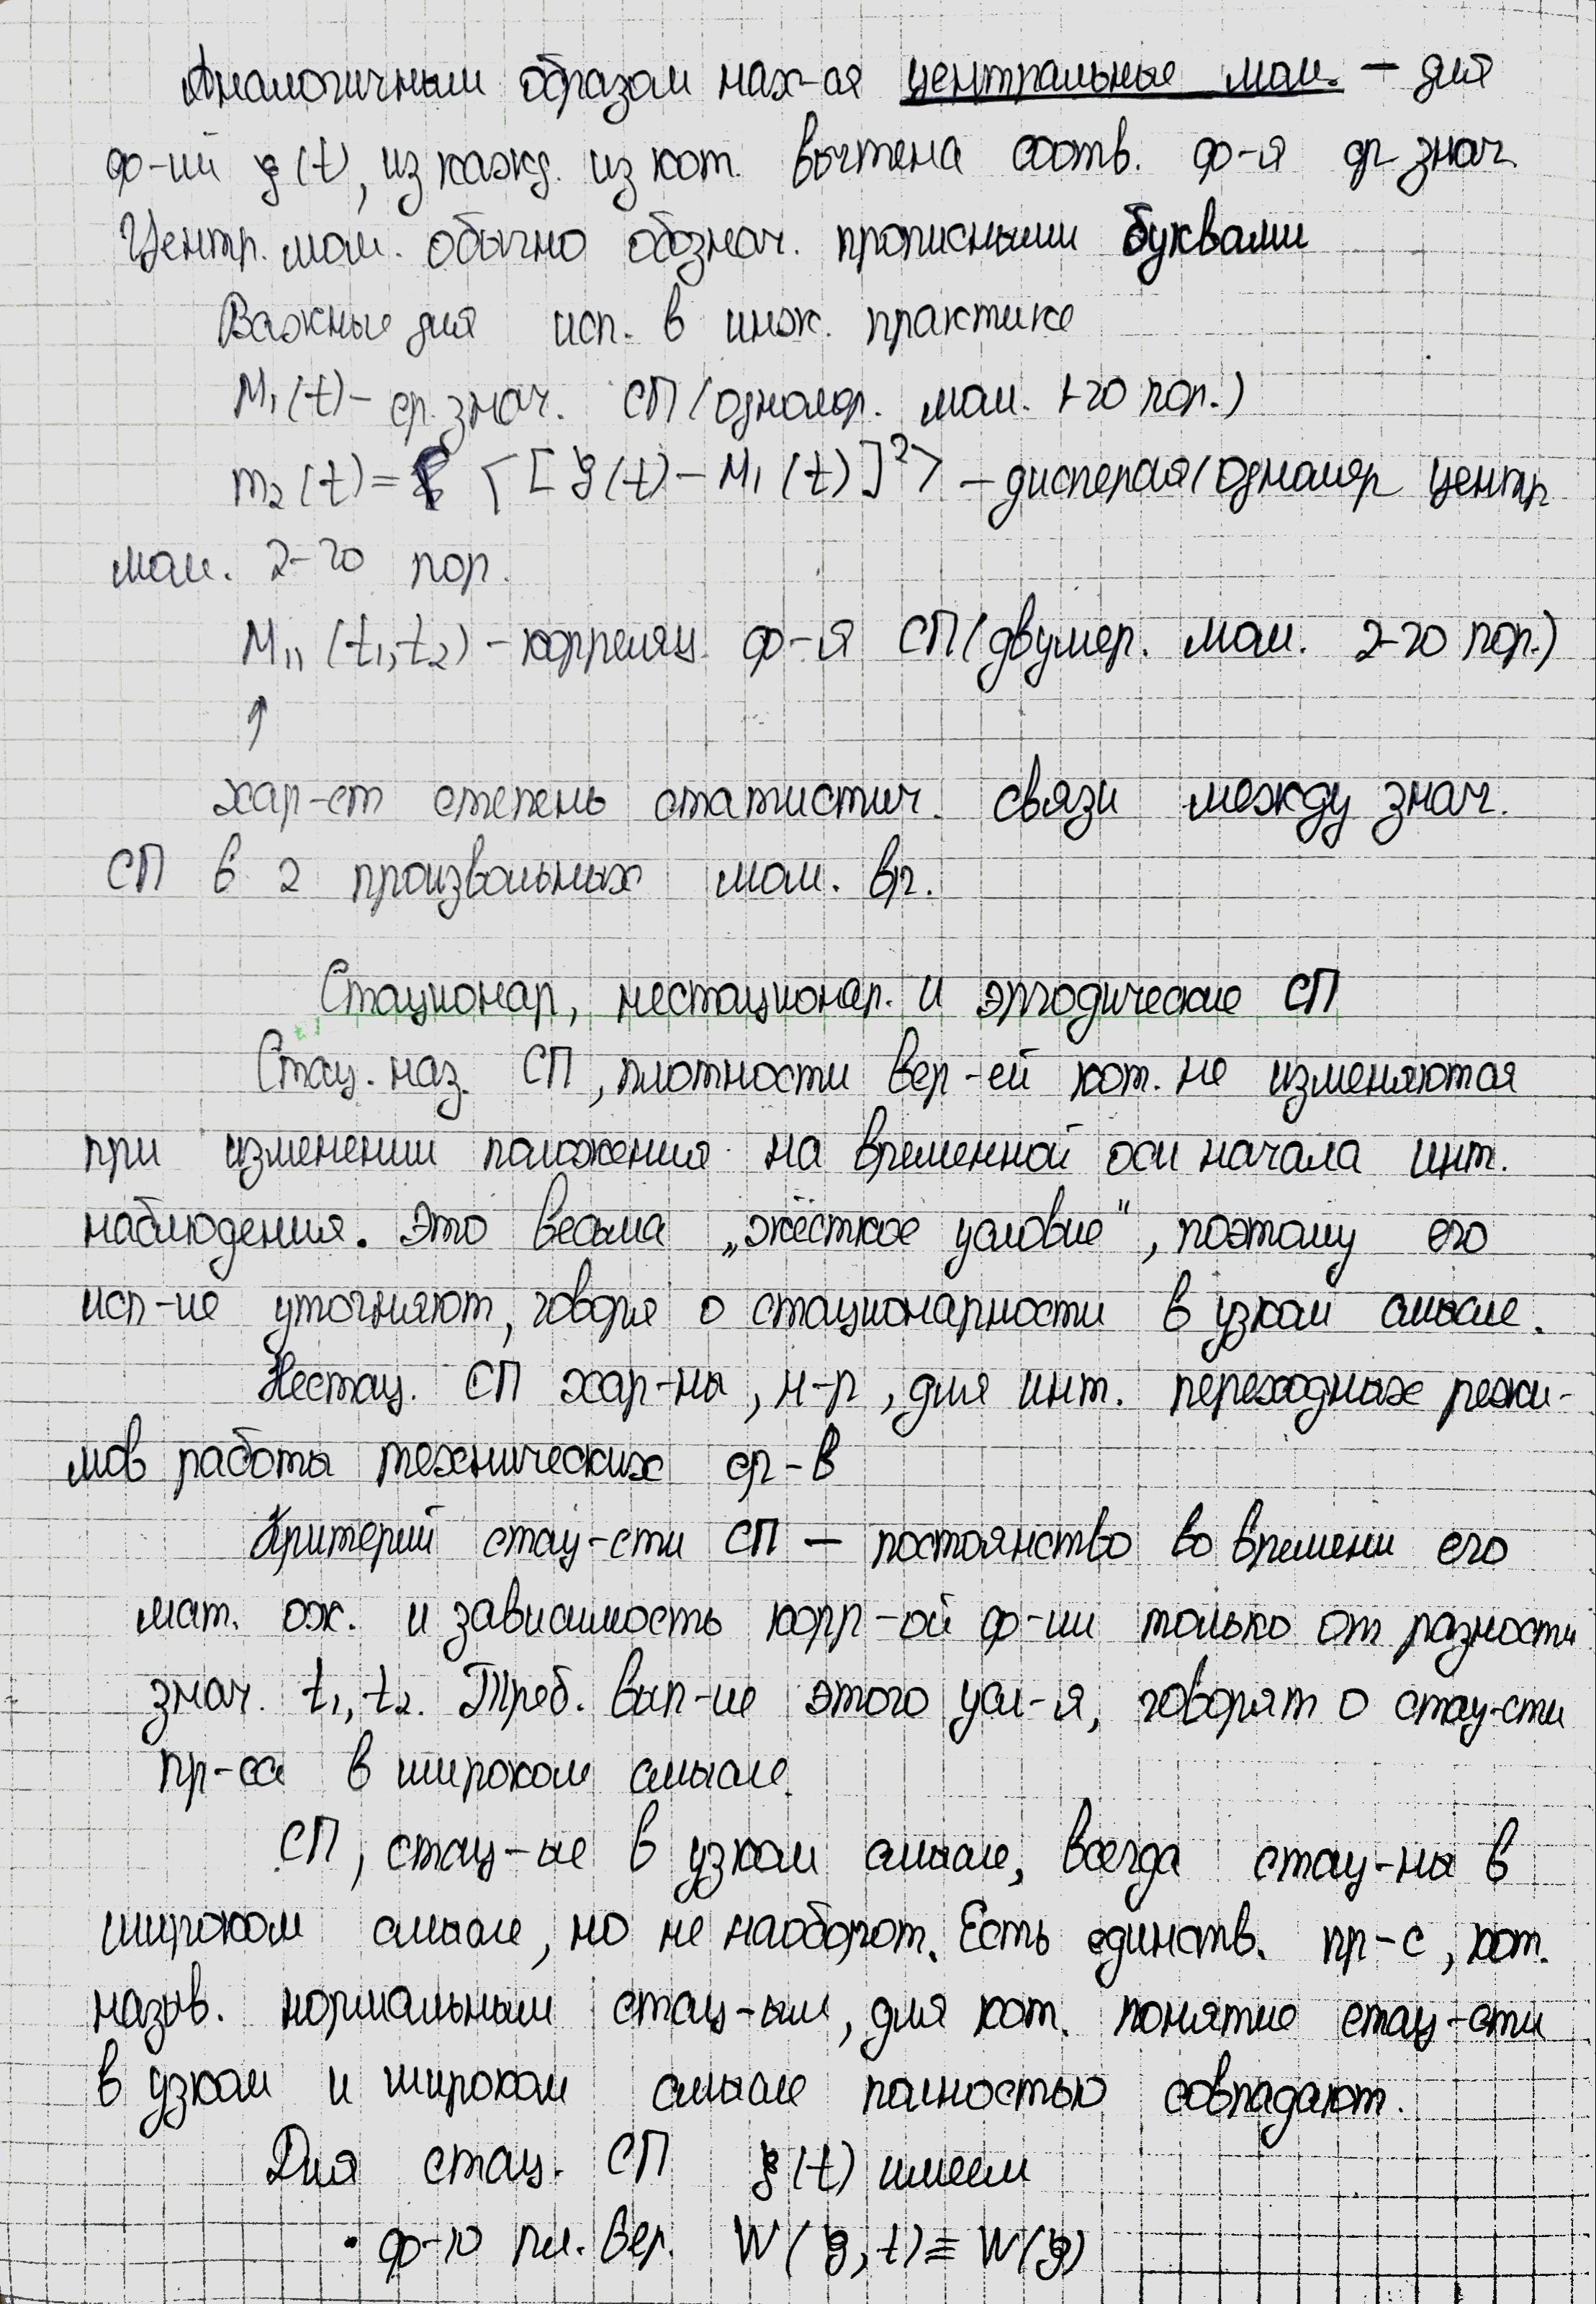 Аналогичным образом нах-ся центральные мом. – для
ф-ий ξ(t), из кажд. из кот. вычтена соотв. ф-я ср. знач.
Центр. мом. обычно обознач. прописными буквами
Важные для исп. в инж. практике
M₁(t) – ср. знач. СП (одномер. мом. 1-го пор.)
m₂(t) = < [ξ(t) – M₁(t)]²> – дисперсия (одномер центр
мом. 2-го пор.
M₁₁(t₁,t₂) – корреляц. ф-я СП (двумер. мом. 2-го пор.)
↑
хар-ет степень статистич. связи между знач.
СП в 2 произвольных мом. вр.
Стационар, нестационар. и эргодические СП
Стац. наз. СП, плотности вер-ей кот. не изменяются
при изменении положения на временной оси начала инт.
наблюдения. Это весьма „жёсткое условие", поэтому его
исп-ие уточняют, говоря о стационарности в узком смысле.
Нестац. СП хар-ны, н-р, для инт. переходных режи-
мов работы технических ср-в
Критерий стац-сти СП – постоянство во времени его
мат. ож. и зависимость корр-ой ф-ии только от разности
знач. t₁, t₂. Треб. вып-ие этого усл-я, говорят о стац-сти
пр-са в широком смысле.
СП, стац-ые в узком смысле, всегда стац-ны в
широком смысле, но не наоборот. Есть единств. пр-с, кот.
назыв. нормальным стац-ым, для кот. понятие стац-сти
в узком и широком смысле полностью совпадают.
Для стац. СП ξ(t) имеем
• ф-ю пл. вер. W(ξ, t) ≡ W(ξ)